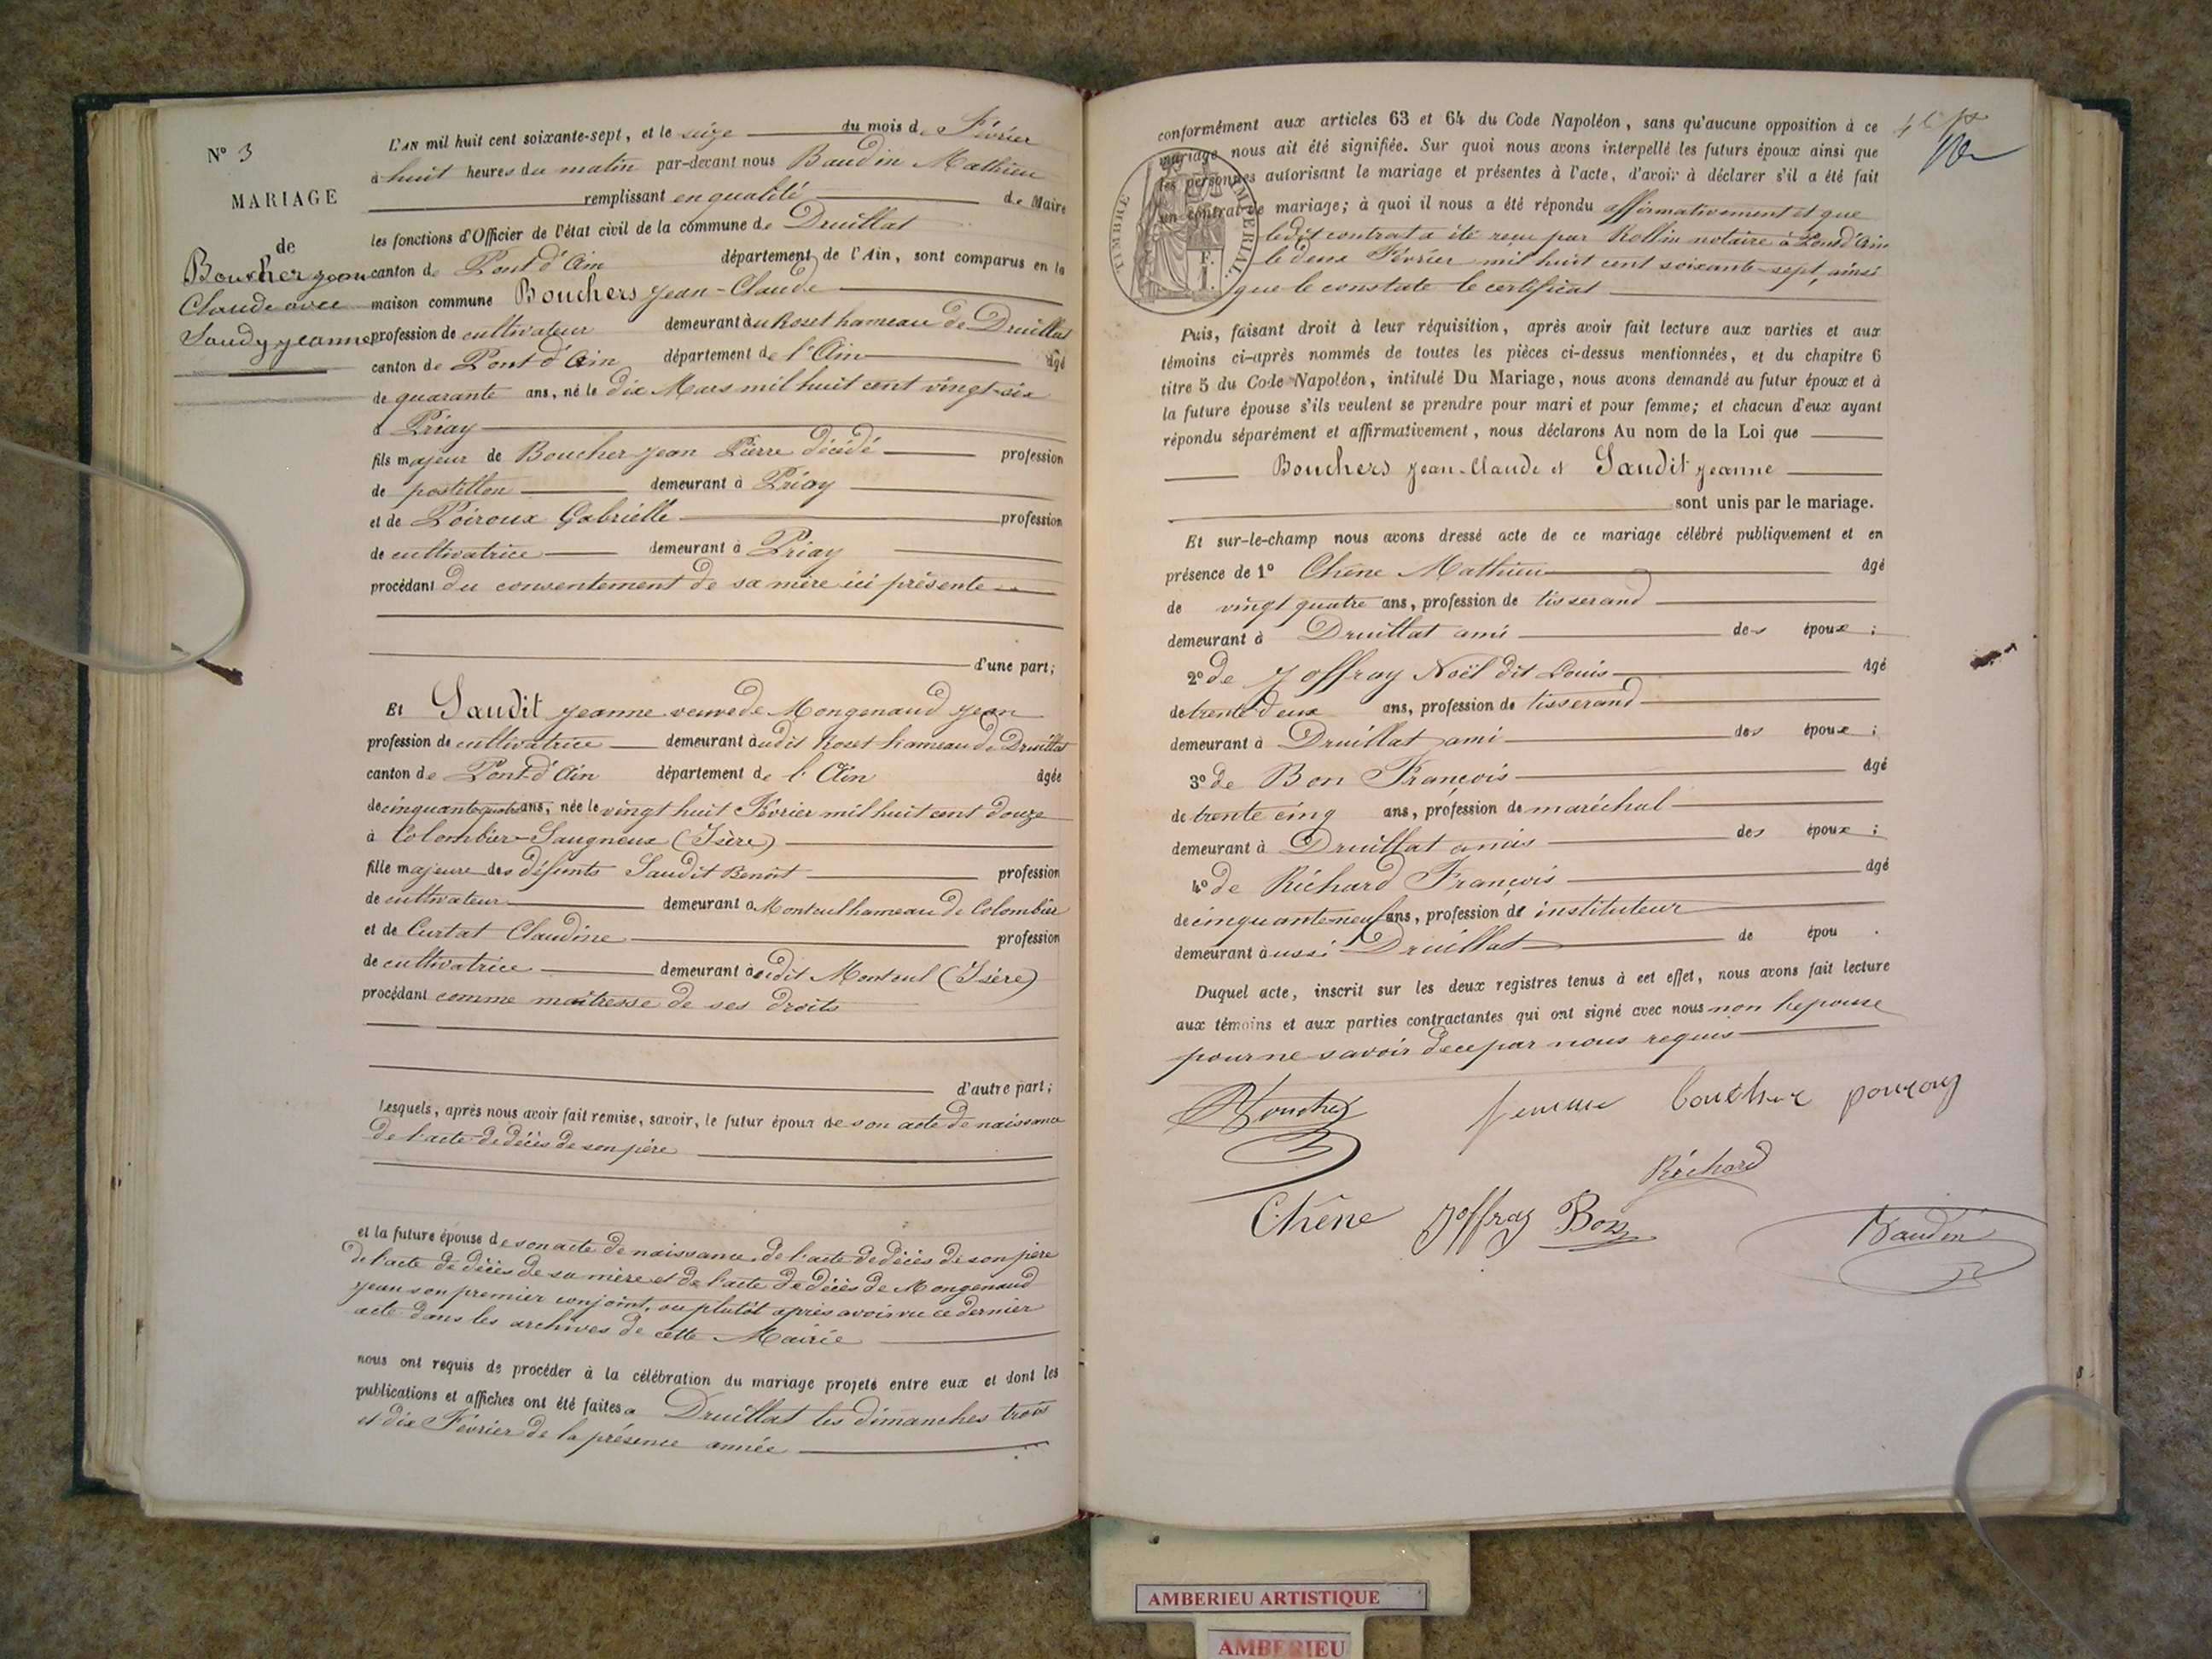 N° 3
MARIAGE
de
Boucher jean
Claude avec
Saudy jeanne
L'AN mil huit cent soixante-sept, et le seize du mois de Février
à huit heures du matin par-devant nous Baudin Mathieu
remplissant en qualité de Maire
les fonctions d'Officier de l'état civil de la commune de Druillat
canton de Pont d'Ain département de l'Ain, sont comparus en la
maison commune Bouchers jean-Claude
profession de cultivateur demeurant au Roset hameau de Druillat
canton de Pont d'Ain département de l'Ain âgé
de quarante ans, né le dix Mars mil huit cent vingt-six
à Priay
fils majeur de Boucher jean Pierre décédé profession
de postillon demeurant à Priay
et de Poiroux Gabrielle profession
de cultivatrice demeurant à Priay
procédant du consentement de sa mère ici présente
d'une part;
Et Saudit jeanne veuve de Mongenaud jean
profession de cultivatrice demeurant audit Roset hameau de Druillat
canton de Pont d'Ain département de l'Ain âgée
de cinquante quatre ans, née le vingt huit Février mil huit cent douze
à Colombier-Saugneux (Isère)
fille majeure des défunts Saudit Benoit profession
de cultivateur demeurant à Monteul hameau de Colombier
et de Curtat Claudine profession
de cultivatrice demeurant audit Monteul (Isère)
procédant comme maîtresse de ses droits
d'autre part;
Lesquels, après nous avoir fait remise, savoir, le futur époux de son acte de naissance
de l'acte de décès de son père
et la future épouse de son acte de naissance, de l'acte de décès de son père
de l'acte de décès de sa mère et de l'acte de décès de Mongenaud
jean son premier conjoint, ou plutôt après avoir vu ce dernier
acte dans les archives de cette Mairie
nous ont requis de procéder à la célébration du mariage projeté entre eux et dont les
publications et affiches ont été faites à Druillat les dimanches trois
et dix Février de la présence année
conformément aux articles 63 et 64 du Code Napoléon, sans qu'aucune opposition à ce
mariage nous ait été signifiée. Sur quoi nous avons interpellé les futurs époux ainsi que
les personnes autorisant le mariage et présentes à l'acte, d'avoir à déclarer s'il a été fait
un contrat de mariage; à quoi il nous a été répondu affirmativement et que
ledit contrat a été reçu par Rollin notaire à Pont d'Ain
le deux Février mil huit cent soixante-sept, ainsi
que le constate le certificat
TIMBRE IMPÉRIAL
Puis, faisant droit à leur réquisition, après avoir fait lecture aux parties et aux
témoins ci-après nommés de toutes les pièces ci-dessus mentionnées, et du chapitre 6
titre 5 du Code Napoléon, intitulé Du Mariage, nous avons demandé au futur époux et à
la future épouse s'ils veulent se prendre pour mari et pour femme; et chacun d'eux ayant
répondu séparément et affirmativement, nous déclarons Au nom de la Loi que
Bouchers jean-Claude et Saudit jeanne
sont unis par le mariage.
Et sur-le-champ nous avons dressé acte de ce mariage célébré publiquement et en
présence de 1° Chêne Mathieu âgé
de vingt quatre ans, profession de tisserand
demeurant à Druillat ami des époux;
2° de Joffray Noël dit Louis âgé
de trente deux ans, profession de tisserand
demeurant à Druillat ami des époux;
3° de Bon François âgé
de trente cinq ans, profession de maréchal
demeurant à Druillat amis des époux;
4° de Réchard François âgé
de cinquante-neuf ans, profession de instituteur
demeurant aussi Druillat de épou .
Duquel acte, inscrit sur les deux registres tenus à cet effet, nous avons fait lecture
aux témoins et aux parties contractantes qui ont signé avec nous non l'épouse
pour ne savoir de ce par nous requis
Bouchez femme bouchez
Réchard
Chêne Joffray Bon Baudin
AMBERIEU ARTISTIQUE
AMBERIEU